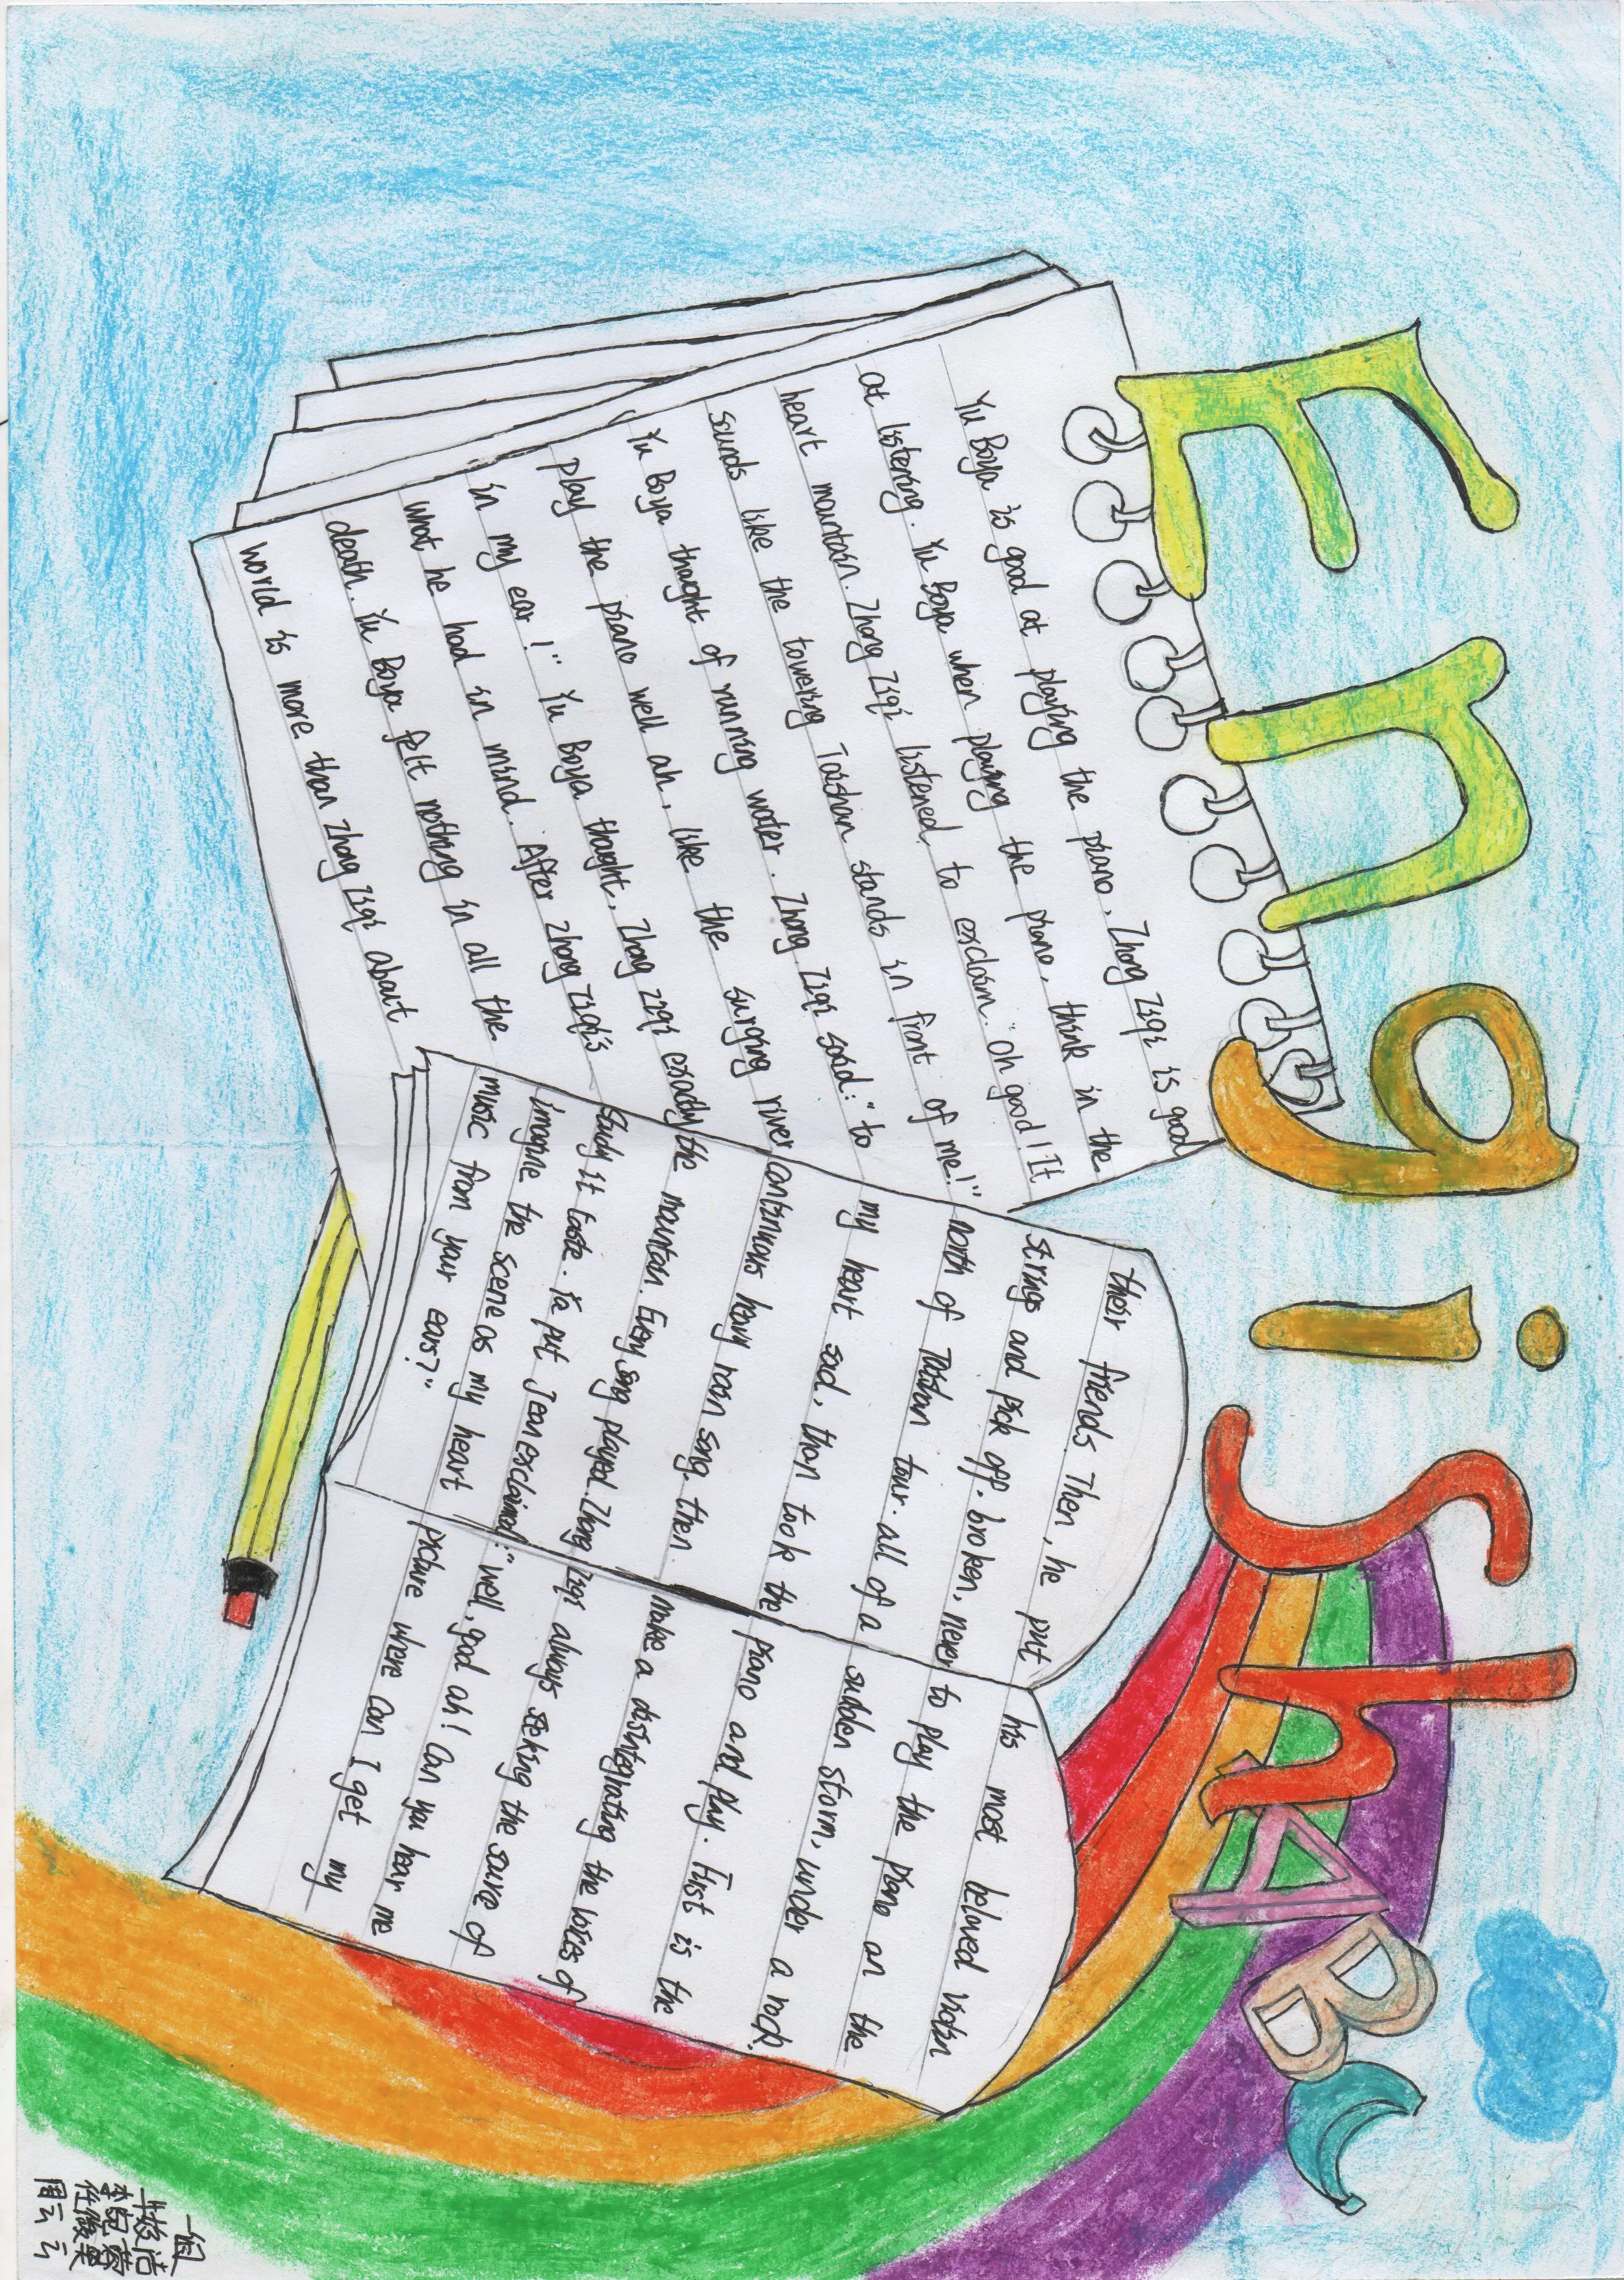 Engish ABC
Yu Boya is good at playing the piano, Zhong Ziqi is good
at listening. Yu Boya when playing the piano, think in the
heart mountain. Zhong Ziqi listened to exclaim. "oh good! It
sounds like the towering Taishan stands in front of me!"
Yu Boya thought of running water. Zhong Ziqi said: "to
play the piano well ah, like the surging river
in my ear!" Yu Boya thought, Zhong Ziqi exactly
what he had in mind. After Zhong Ziqi's
death. Yu Boya felt nothing in all the
world is more than Zhong Ziqi about
their friends Then, he put his most beloved violin
strings and pick off. broken, never to play the piano an the
north of Taishan tour. all of a sudden storm, under a rock.
my heart sad, than took the piano and play. First is the
continuous heavy rain song. then make a disintegrating the voices of
the mountain. Every song played. Zhong Ziqi always seeking the soure of
Study it taste. Ya put Jean exclaimed: "well, good ah! Can you hear me
imagine the scene as my heart picture where can I get my
music from your ears?"
一组
周云云